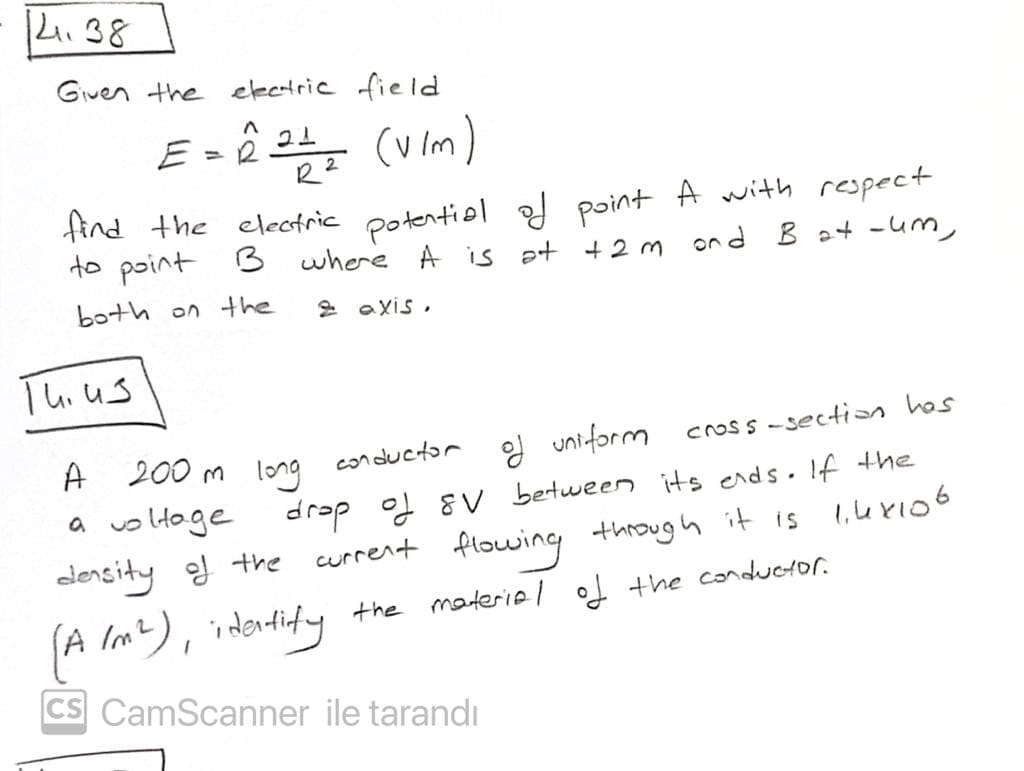 4.38
Given the electric field
E = R̂ 21/R² (V/m)
find the electric potential of point A with respect
to point B where A is at +2 m and B at -4m,
both on the z axis.
4.45
A 200 m long conductor of uniform cross-section has
a voltage drop of 8V between its ends. If the
density of the current flowing through it is 1.4x10⁶
(A/m²), identify the material of the conductor.
CS CamScanner ile tarandı